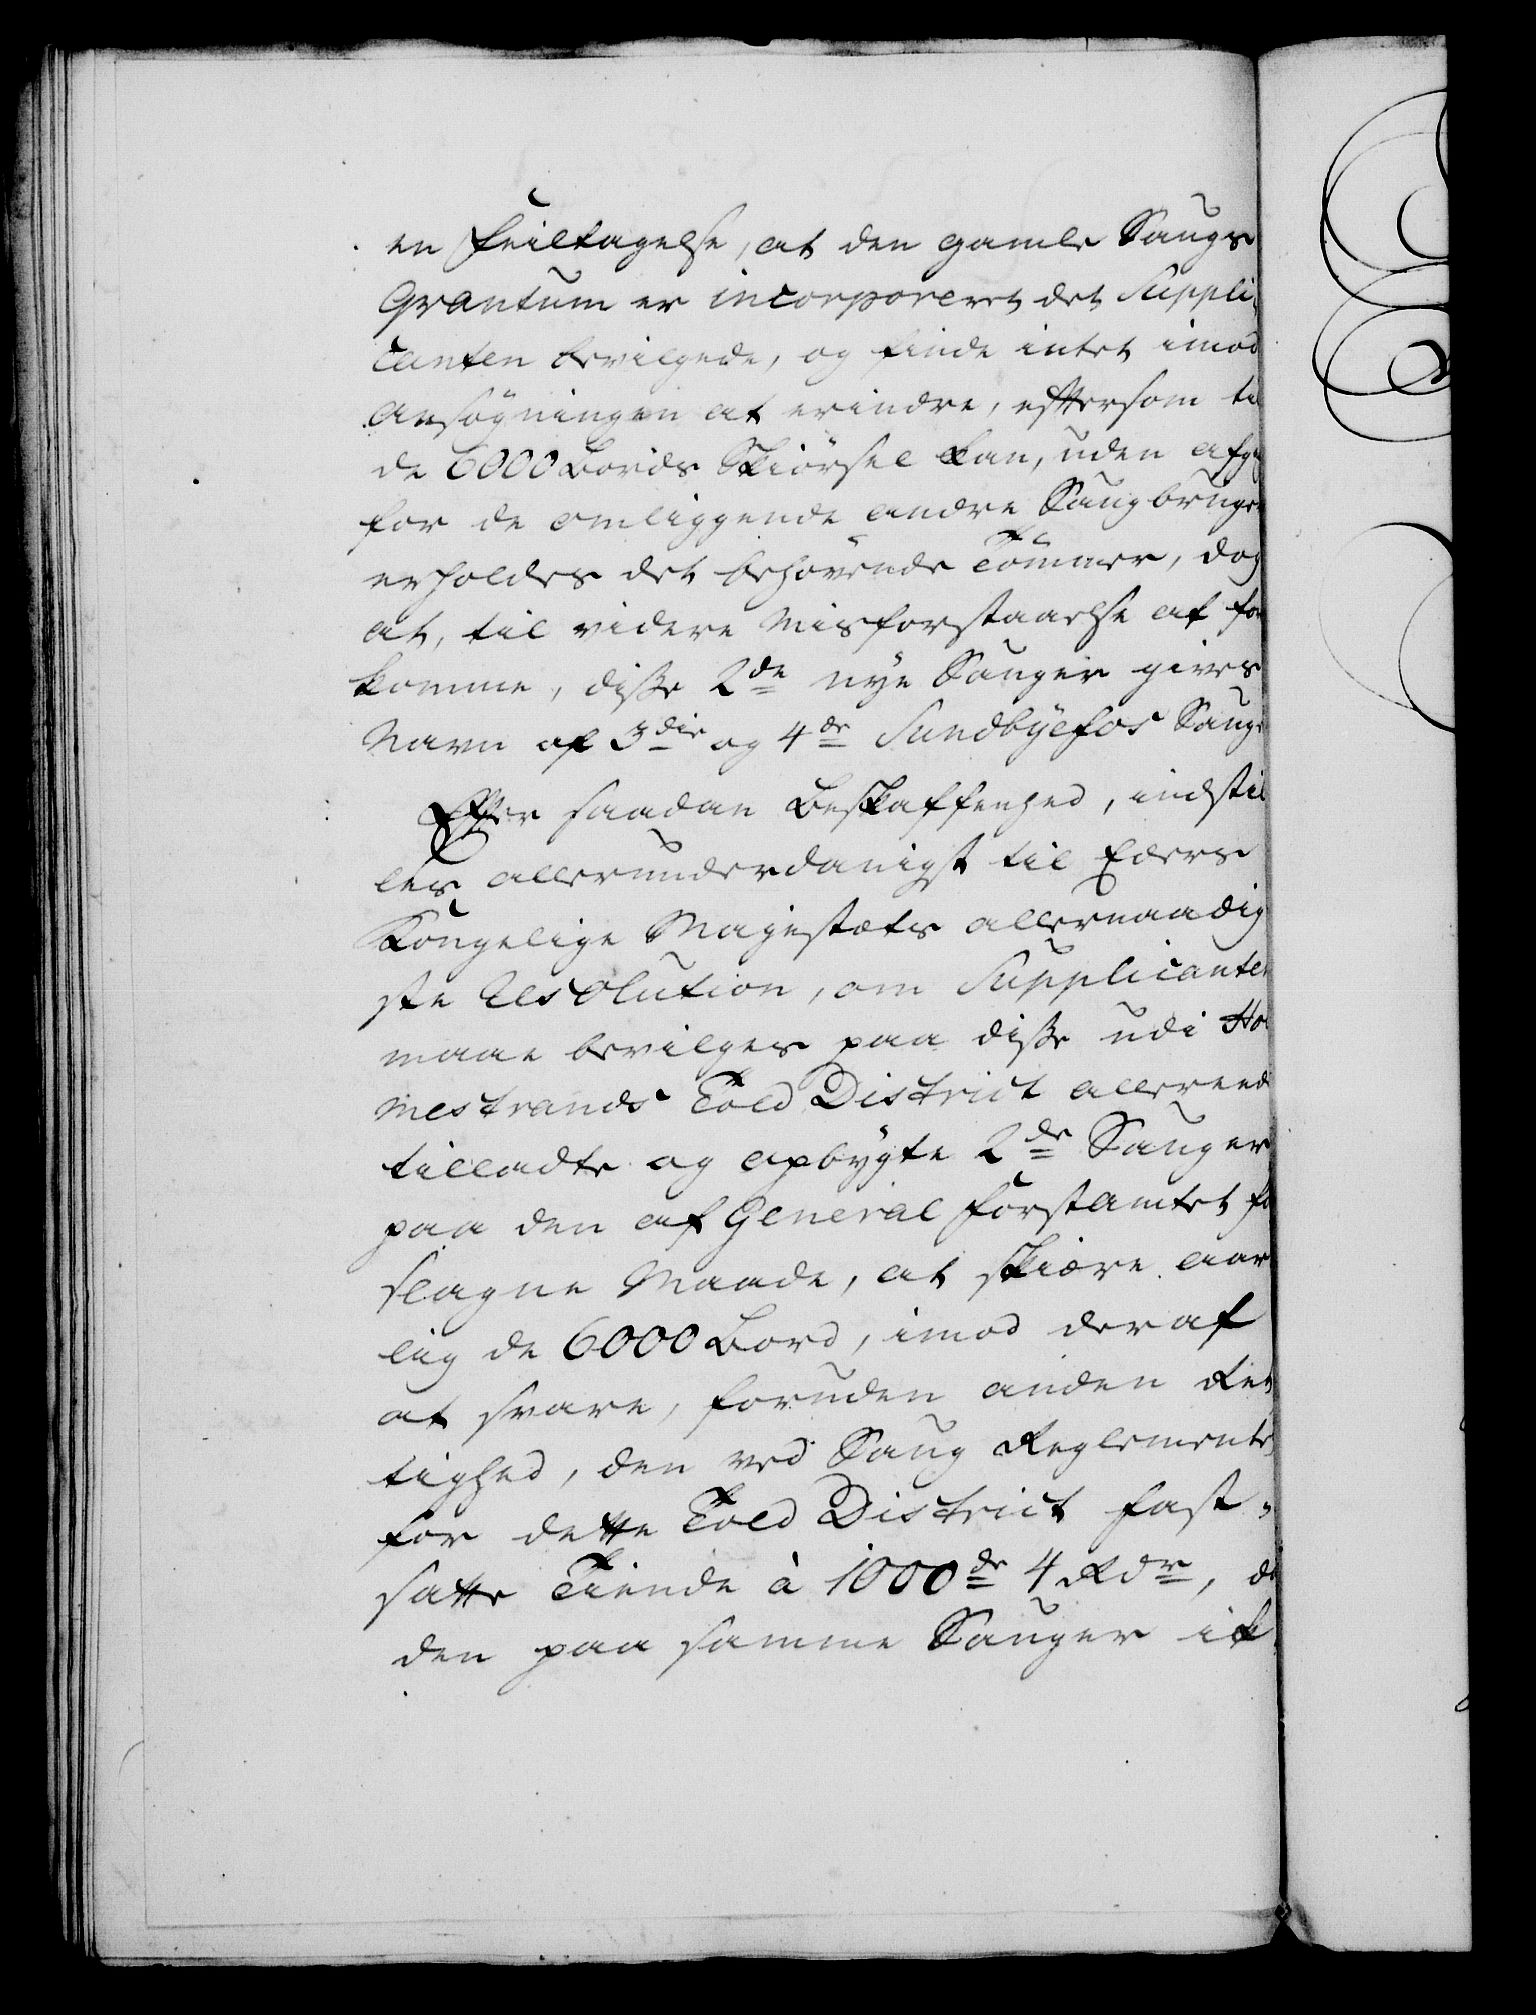 en Feiltagelse, at den gamle Saugs
Qvantum er incorporeret det Suppli-
canten bevilgede, og finde intet imod
Ansøgningen at erindre, eftersom til
de 6000 Bords Skiørsel kan, uden afga
for de omliggende andre Saugbruger
erholdes det behøvende Tømmer, dog
at, til videre Misforstaaelse at for
komme, disse 2de nye Sauger gives
Navn af 3die og 4de Sundbyefos Sauge
Efter saadan Beskaffenhed, indstil
les allerunderdanigst til Eders
Kongelige Majestæts allernaadig
ste Resolution, om Supplicanten
maae bevilges paa disse udi Hol
mestrands Told District allereede
tilladte og opbygte 2de Sauger
paa den af General Forstamtet fo
slagne Maade, at skiære aar
lig de 6000 Bord, imod deraf
at svare, foruden anden Ret
tighed, den ved Saug Reglementet
for dette Told District fast-
satte Tiende à 1000de 4 Rdr, di
den paa samme Sauger ik